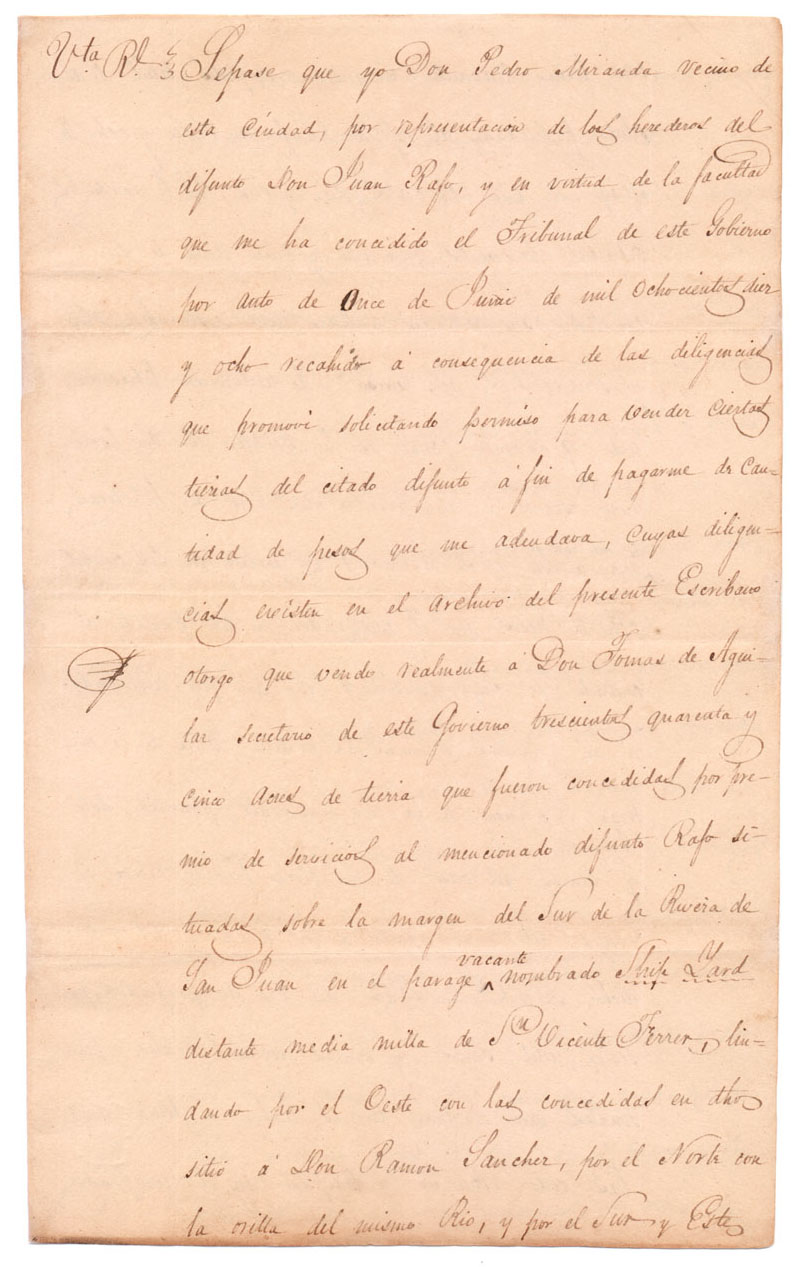 Vta Rl Sepase que yo Don Pedro Miranda vecino de
esta Ciudad, por representacion de los herederos del
difunto Don Juan Rafo, y en virtud de la facultad
que me ha concedido el Tribunal de este Gobierno
por auto de Once de Junio de mil ochocientos diez
y ocho recahido á consequencia de las diligencias
que promovi solicitando permiso para vender ciertas
tierras del citado difunto á fin de pagarme de can=
tidad de pesos que me adeudava, cuyas diligen=
cias existen en el archivo del presente Escribano
otorgo que vendo realmente á Don Tomas de Agui-
lar secretario de este Govierno trescientos quarenta y
cinco acres de tierra que fueron concedidas por pre-
mio de servicios al mencionado difunto Rafo si-
tuadas sobre la margen del Sur de la Rivera de
San Juan en el parage vacante nombrado Ship Yard
distante media milla de Sn Vicente Ferrer, lin=
dando por el Oeste con las concedidas en dho
sitio á Don Ramon Sanchez, por el Norte con
la orilla del mismo Rio, y por el Sur y Este